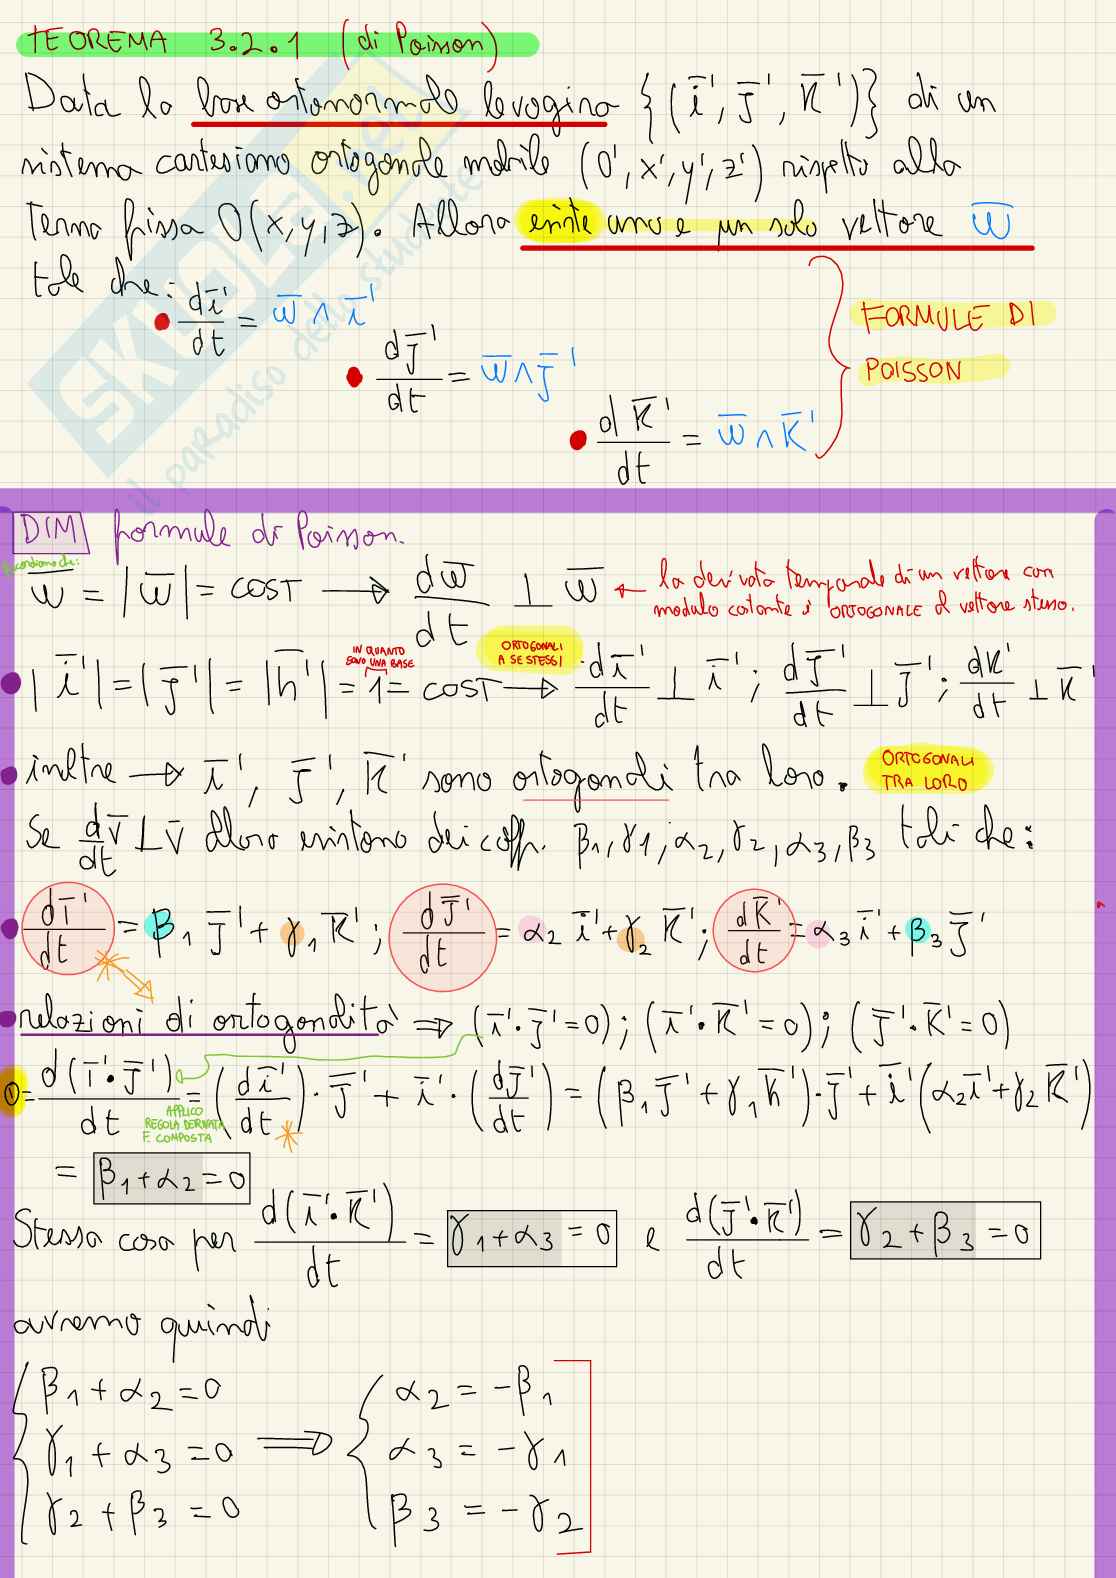 TEOREMA 3.2.1 (di Poisson)
Data la base ortonormale levogira {(i̅', j̅', k̅')} di un
sistema cartesiano ortogonale mobile (O', x', y', z') rispetto alla
terna fissa O(x, y, z). Allora esiste uno e un solo vettore w̅
tale che:
• di̅'/dt = w̅ ∧ i̅'
• dj̅'/dt = w̅ ∧ j̅'
• dk̅'/dt = w̅ ∧ k̅'
FORMULE DI
POISSON
SKUOLA.net
il paradiso dello studente
DIM formule di Poisson.
Ricordiamo che:
w̅ = |w̅| = COST → dw̅/dt ⊥ w̅ ← la derivata temporale di un vettore con
modulo costante è ORTOGONALE al vettore stesso.
IN QUANTO
SONO UNA BASE
ORTOGONALI
A SE STESSI
• |i̅'| = |j̅'| = |h̅'| = 1 = COST → di̅'/dt ⊥ i̅'; dj̅'/dt ⊥ j̅'; dk̅'/dt ⊥ k̅'
• inoltre → i̅', j̅', k̅' sono ortogonali tra loro.
ORTOGONALI
TRA LORO
Se dv̅/dt ⊥ v̅ allora esistono dei coeff. β1, γ1, α2, γ2, α3, β3 tali che:
• di̅'/dt = β1 j̅' + γ1 k̅'; dj̅'/dt = α2 i̅' + γ2 k̅'; dk̅'/dt = α3 i̅' + β3 j̅'
• relazioni di ortogonalità ⇒ (i̅'·j̅' = 0); (i̅'·k̅' = 0); (j̅'·k̅' = 0)
0 = d(i̅'·j̅')/dt = (di̅'/dt)·j̅' + i̅'·(dj̅'/dt) = (β1 j̅' + γ1 h̅')·j̅' + i̅'(α2 i̅' + γ2 k̅')
APPLICO
REGOLA DERIVATA
F. COMPOSTA
= β1 + α2 = 0
Stessa cosa per d(i̅'·k̅')/dt = γ1 + α3 = 0 e d(j̅'·k̅')/dt = γ2 + β3 = 0
avremo quindi
{ β1 + α2 = 0 ⟹ { α2 = -β1
γ1 + α3 = 0 α3 = -γ1
γ2 + β3 = 0 β3 = -γ2